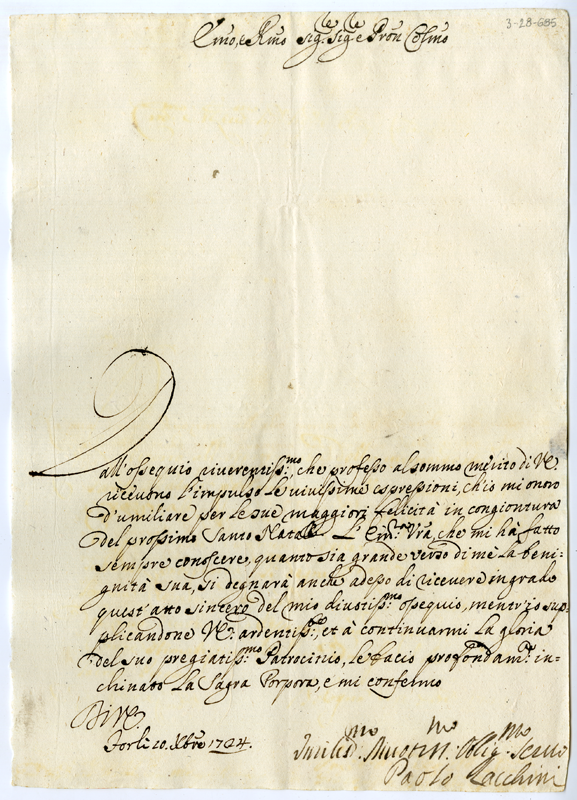 3-28-685
Emo, e Rmo Sig.re Sig.re e Pron Colmo
Dall'ossequio riverentiss.mo, che professo al sommo merito di V.E.
ricevono l'impulso le vivissime espressioni, ch'io mi onoro
d'umiliare per le sue maggiori felicità in congiontura
del prossimo Santo Natale. L'Em.za Vra, che mi hà fatto
sempre conoscere, quanto sia grande verso di me la beni-
gnità sua, si degnarà anche adesso di ricevere in grado
quest'atto sincero del mio divotiss.mo ossequio, mentr'io sup-
plicandone V.E. ardentiss.te, et à continuarmi la gloria
del suo pregiatiss.mo Patrocinio, le bacio profondam.te in-
chinato la Sagra Porpora, e mi confermo
Di V.E.
Forlì 20. Xbre 1724.
Umiliss.mo Divotiss.mo Oblig.mo Servo
Paolo Zacchini